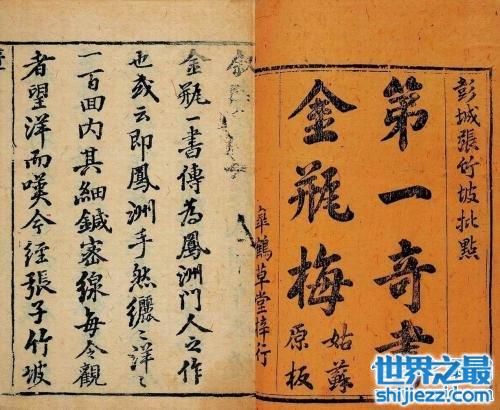 彭城張竹坡批點
第一奇書
金瓶梅
姑蘇
原板
臯鶴草堂梓行
金瓶一書傳為鳳洲門人之作
也或云即鳳洲手然纚〻洋〻
一百回内其細鍼密線每令觀
者望洋而嘆今經張子竹坡
世界之最
shijiezz.com